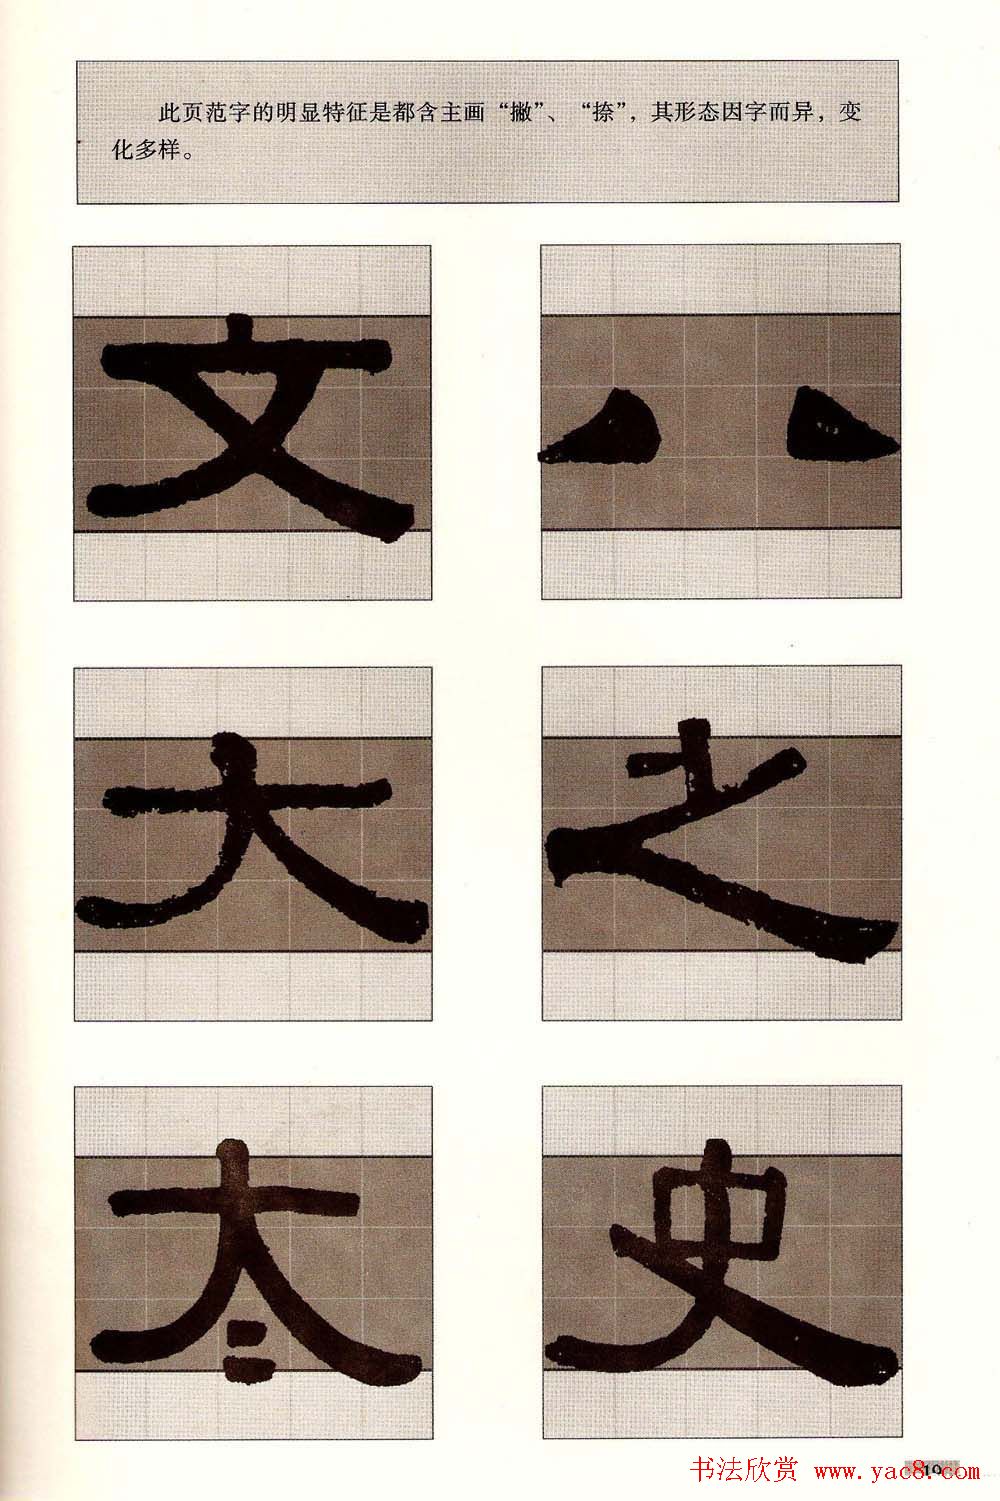 此页范字的明显特征是都含主画“撇”、“捺”，其形态因字而异，变
化多样。
文 八
大 之
太 史
19
书法欣赏 www.yac8.com